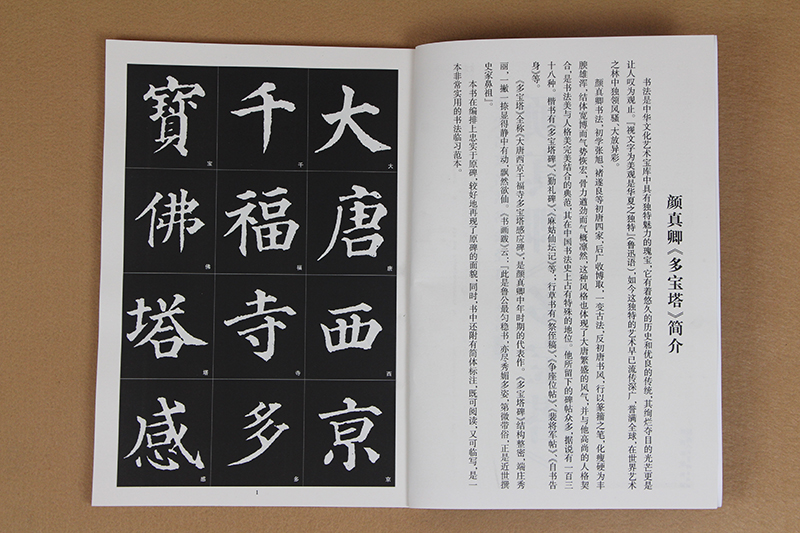 颜真卿《多宝塔》简介
书法是中华文化艺术宝库中具有独特魅力的瑰宝,它有着悠久的历史和优良的传统,其绚烂夺目的光芒更是
让人叹为观止。「视文字为美观是华夏之独特」(鲁迅语),如今这独特的艺术早已流传深广,誉满全球,在世界艺术
之林中独领风骚、大放异彩。
颜真卿书法,初学张旭、褚遂良等初唐四家,后广收博取,一变古法,反初唐书风,行以篆籀之笔,化瘦硬为丰
腴雄浑,结体宽博而气势恢宏,骨力遒劲而气概凛然,这种风格也体现了大唐繁盛的风气,并与他高尚的人格契
合,是书法美与人格美完美结合的典范,其在中国书法史上占有特殊的地位。他所留下的碑帖众多,据说有一百三
十八种。楷书有《多宝塔碑》、《勤礼碑》、《麻姑仙坛记》等;行草书有《祭侄稿》、《争座位帖》、《裴将军帖》、《自书告
身》等。
《多宝塔》全称《大唐西京千福寺多宝塔感应碑》,是颜真卿中年时期的代表作。《多宝塔碑》结构整密,端庄秀
丽,一撇一捺显得静中有动,飘然欲仙。《书画跋》云:「此是鲁公最匀稳书,亦尽秀媚多姿,第微带俗,正是近世掾
史家鼻祖」。
本书在编排上忠实于原碑,较好地再现了原碑的面貌,同时,书中还附有简体标注,既可阅读,又可临写,是一
本非常实用的书法临习范本。
大 大
唐 唐
西 西
京 京
千 千
福 福
寺 寺
多 多
寶 宝
佛 佛
塔 塔
感 感
1